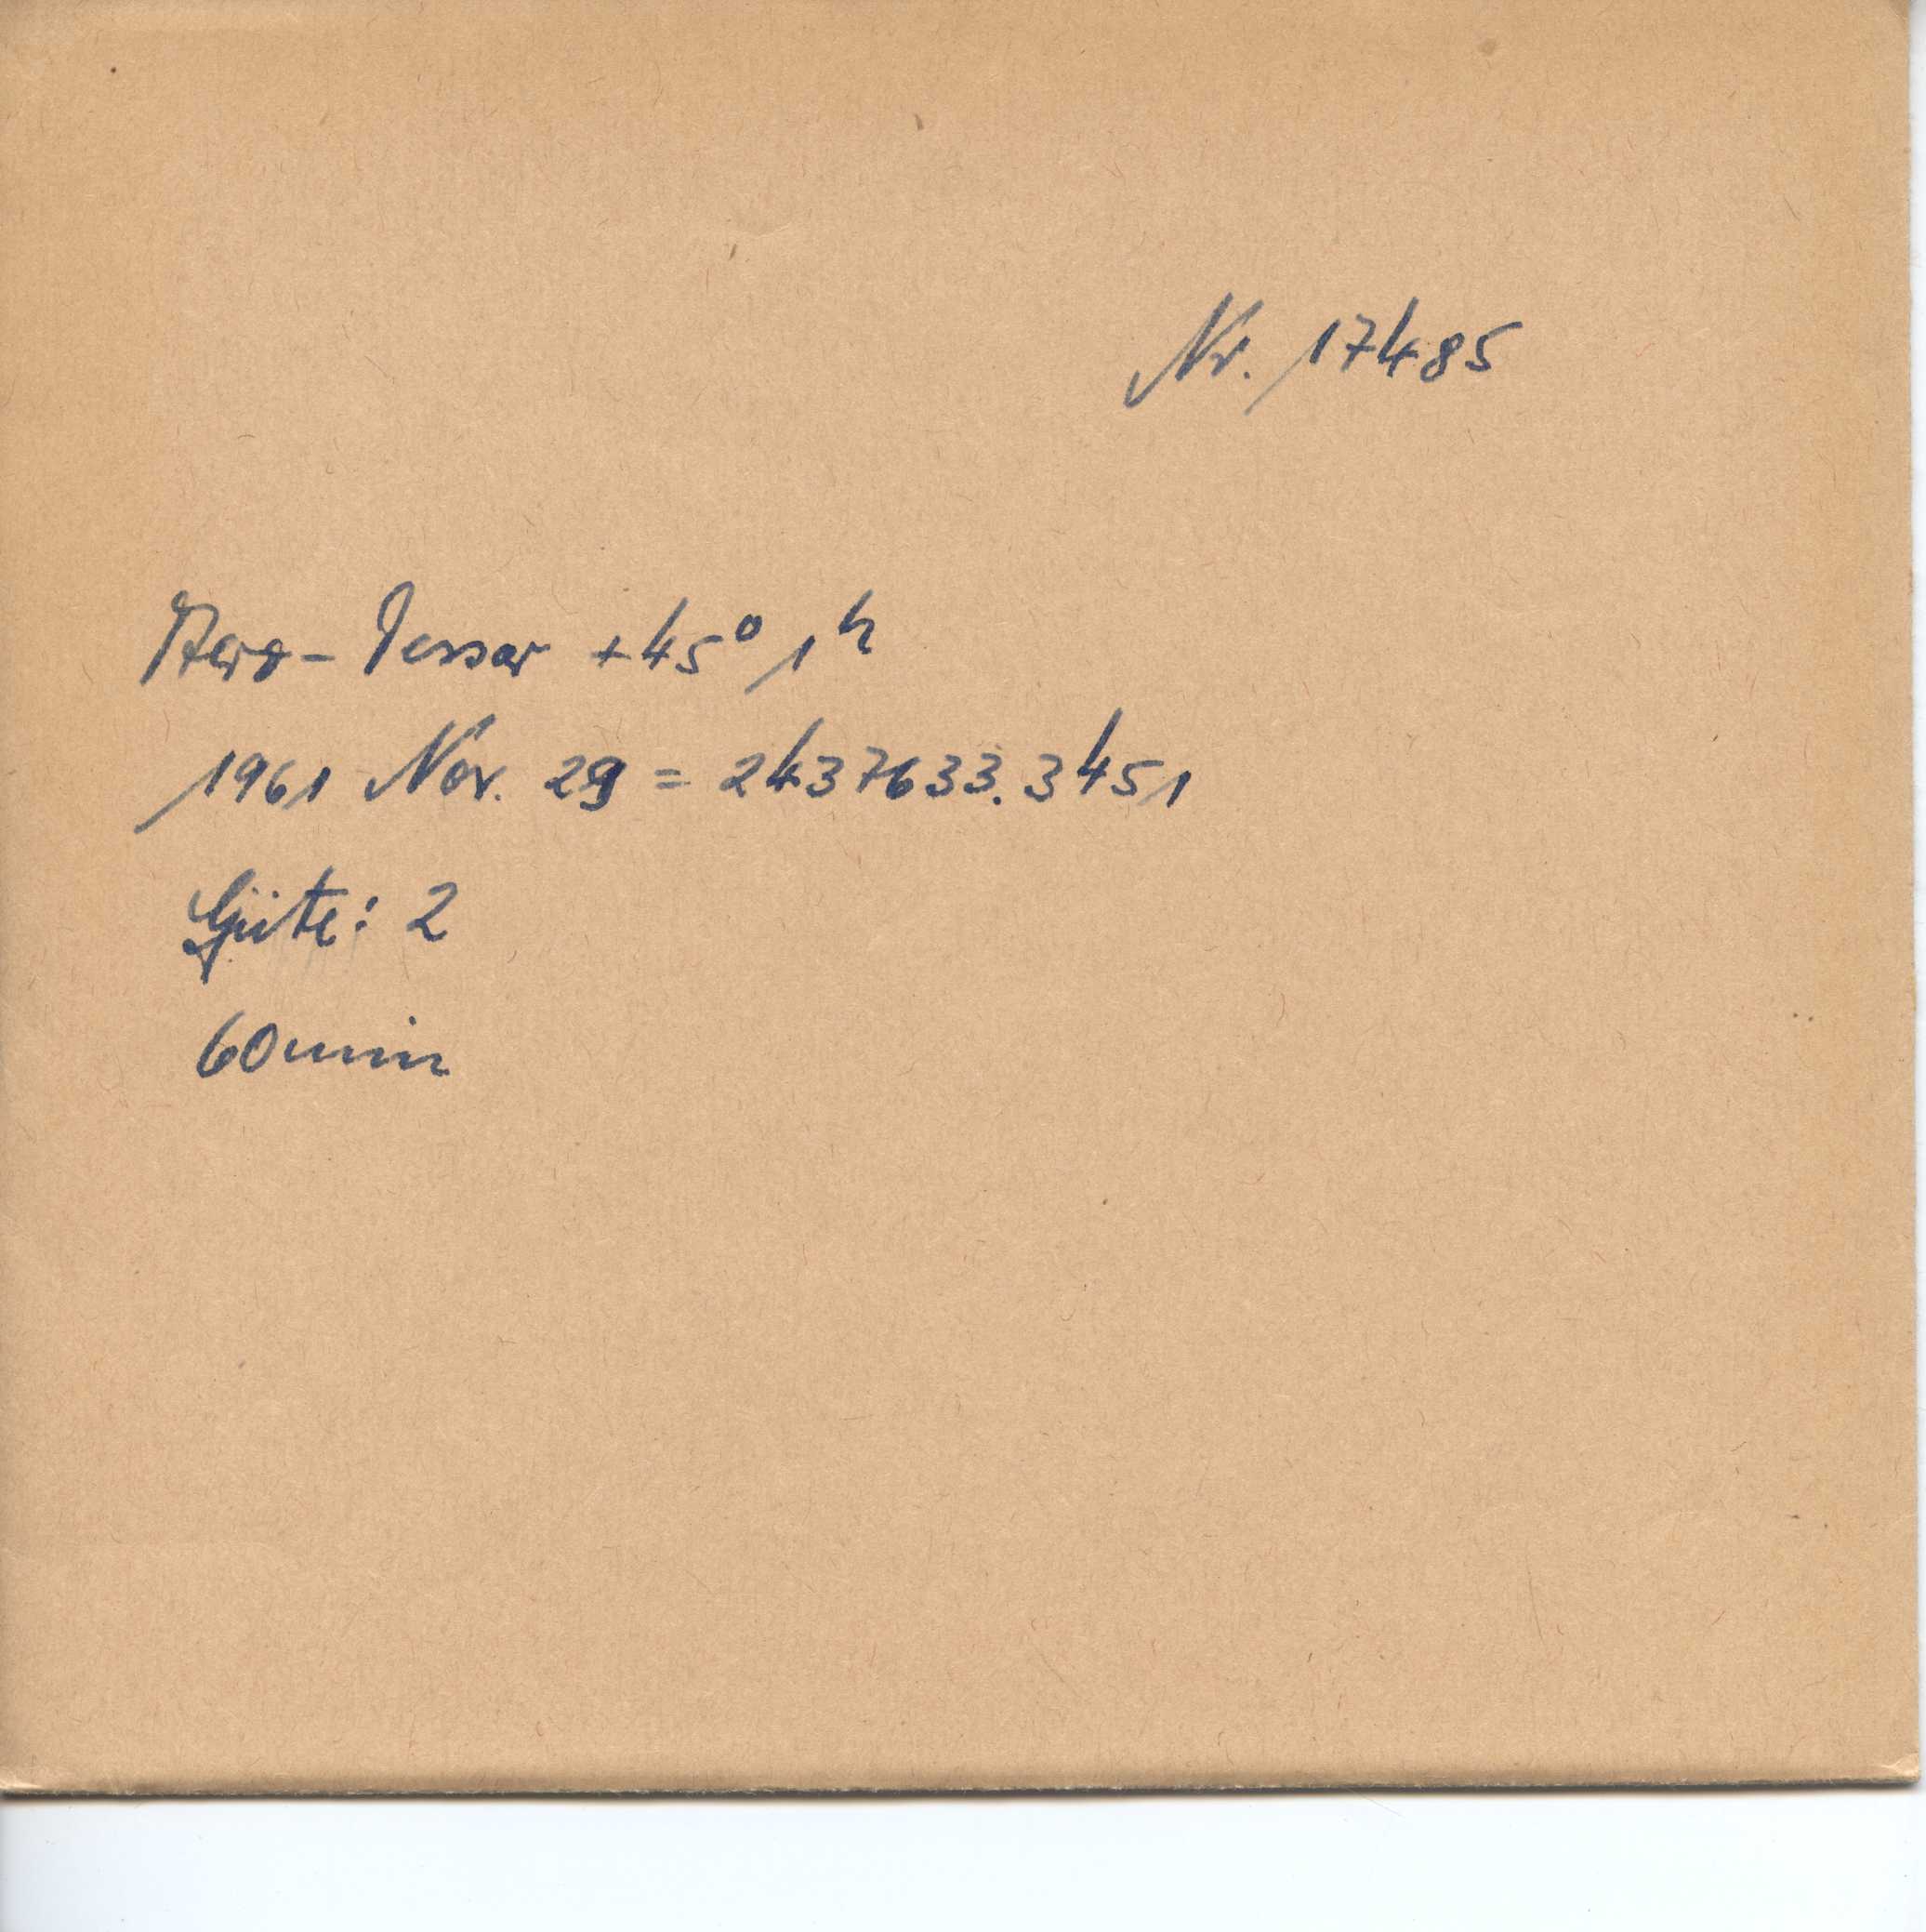 Nr. 17485
Aero-Tessar +45° 1ʰ
1961 Nov. 29 = 2437633.3451
Güte: 2
60min